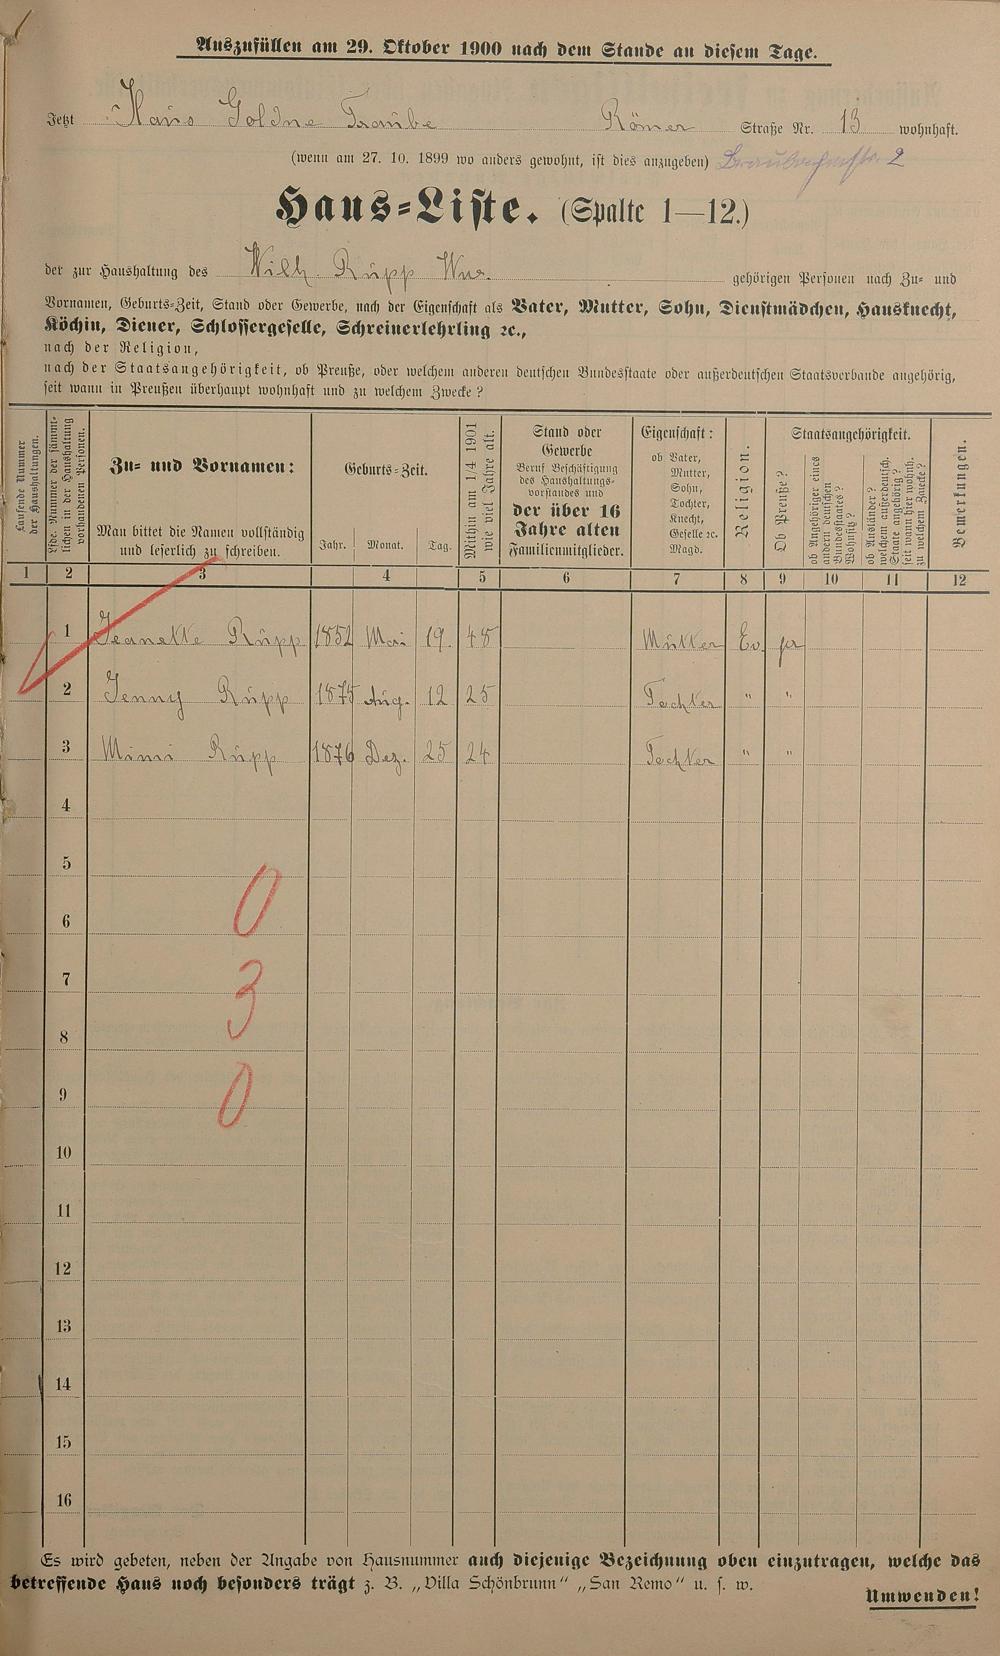 Auszufüllen am 29. Oktober 1900 nach dem Stande an diesem Tage.
Jetzt Haus Goldne Traube Römer Straße Nr. 13 wohnhaft.
(wenn am 27. 10. 1899 wo anders gewohnt, ist dies anzugeben) Braubacherstr. 2
Haus-Liste. (Spalte 1—12.)
der zur Haushaltung des Wilh. Rupp Wwe. gehörigen Personen nach Zu- und
Vornamen, Geburts-Zeit, Stand oder Gewerbe, nach der Eigenschaft als Vater, Mutter, Sohn, Dienstmädchen, Hausknecht,
Köchin, Diener, Schlossergeselle, Schreinerlehrling ꝛc.,
nach der Religion,
nach der Staatsangehörigkeit, ob Preuße, oder welchem anderen deutschen Bundesstaate oder außerdeutschen Staatsverbande angehörig,
seit wann in Preußen überhaupt wohnhaft und zu welchem Zwecke?
Laufende Nummer
der Haushaltungen.
Lfde. Nummer der sämmt-
lichen in der Haushaltung
vorhandenen Personen.
Zu- und Vornamen:
Man bittet die Namen vollständig
und leserlich zu schreiben.
Geburts-Zeit.
Jahr. Monat. Tag.
Mithin am 1/4 1901
wie viel Jahre alt.
Stand oder
Gewerbe
Beruf Beschäftigung
des Haushaltungs-
vorstandes und
der über 16
Jahre alten
Familienmitglieder.
Eigenschaft:
ob Vater,
Mutter,
Sohn,
Tochter,
Knecht,
Geselle ꝛc.
Magd.
Religion.
Staatsangehörigkeit.
Ob Preuße?
ob Angehöriger eines
andern deutschen
Bundesstaates?
Wohnsitz?
ob Ausländer?
welchem außerdeutsch.
Staate angehörig?
seit wann hier wohnh.
zu welchem Zwecke?
Bemerkungen.
1 2 3 4 5 6 7 8 9 10 11 12
1 Jeanette Rupp 1852 Mai 19. 48 Mutter Ev. pr
2 Jenny Rupp 1875 Aug. 12 25 Tochter " "
3 Mimi Rupp 1876 Dez. 25 24 Tochter " "
4
5
0
6
7
3
8
9
0
10
11
12
13
14
15
16
Es wird gebeten, neben der Angabe von Hausnummer auch diejenige Bezeichnung oben einzutragen, welche das
betreffende Haus noch besonders trägt z. B. „Villa Schönbrunn“ „San Remo“ u. s. w.
Umwenden!